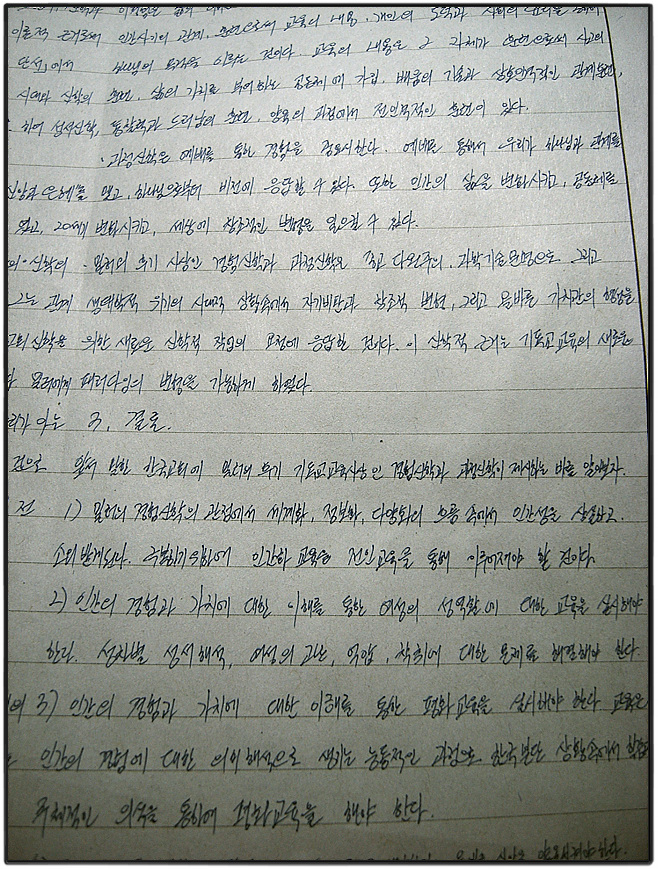 이론적 근거로써 인간사이의 관계, 훈련으로써 교육의 내용, 개인의
에서 것이다. 교육의 내용은 2 가지가 훈련으로써 사고의
시대와 신학의 훈련, 삶의 가치를 부여하는 공동체에 가입, 배움의 기술과 상호인격적인 관계훈련,
하여 섬김신학, 통찰력과 드러남의 훈련, 양육의 과정에서 전인격적인 훈련이 있다.
·과정신학은 예배를 통한 경험을 강조시한다. 예배를 통해서 우리가 하나님과 관계를
맺고, 하나님으로부터 비전에 응답할 수 있다. 또한 인간의 삶을 변화시키고, 공동체를
변화시키고, 세상에 창조적인 변형을 일으킬 수 있다.
신학의 · 밀러의 후기 사상인 경험신학과 과정신학은 종교 다원주의, 과학기술문명으로 그리고
관계 생태학적 위기의 시대적 상황속에서 자기비판과 창조적 변형, 그리고 올바른 가치관의 형성을
위한 새로운 신학적 작업의 요청에 응답한 것이다. 이 신학적 근거는 기독교교육의 새로운
패러다임의 변형을 가능하게 하였다.
3. 결론.
앞서 말한 한국교회에 밀러의 후기 기독교교육사상인 경험신학과 과정신학이 제시하는 바를 알아보자.
전 1) 밀러의 경험신학의 관점에서 세계화, 정보화, 다양화의 흐름 속에서 인간성을 상실하고.
소외받게된다. 극복하기위하여 인간화 교육은 전인교육을 통해 이루어져야 할 것이다.
2) 인간의 경험과 가치에 대한 이해를 통한 여성의 성역할에 대한 교육을 실시해야
한다. 성차별 성서해석, 여성의 고난, 억압, 착취에 대한 문제를 해결해야 한다
3) 인간의 경험과 가치에 대한 이해를 통한 평화교육을 실시해야 한다 교육은
인간의 경험에 대한 의미해석으로 생기는 능동적인 과정으로 한국분단 상황속에서
주체적인 의식을 통하여 평화교육을 해야 한다.